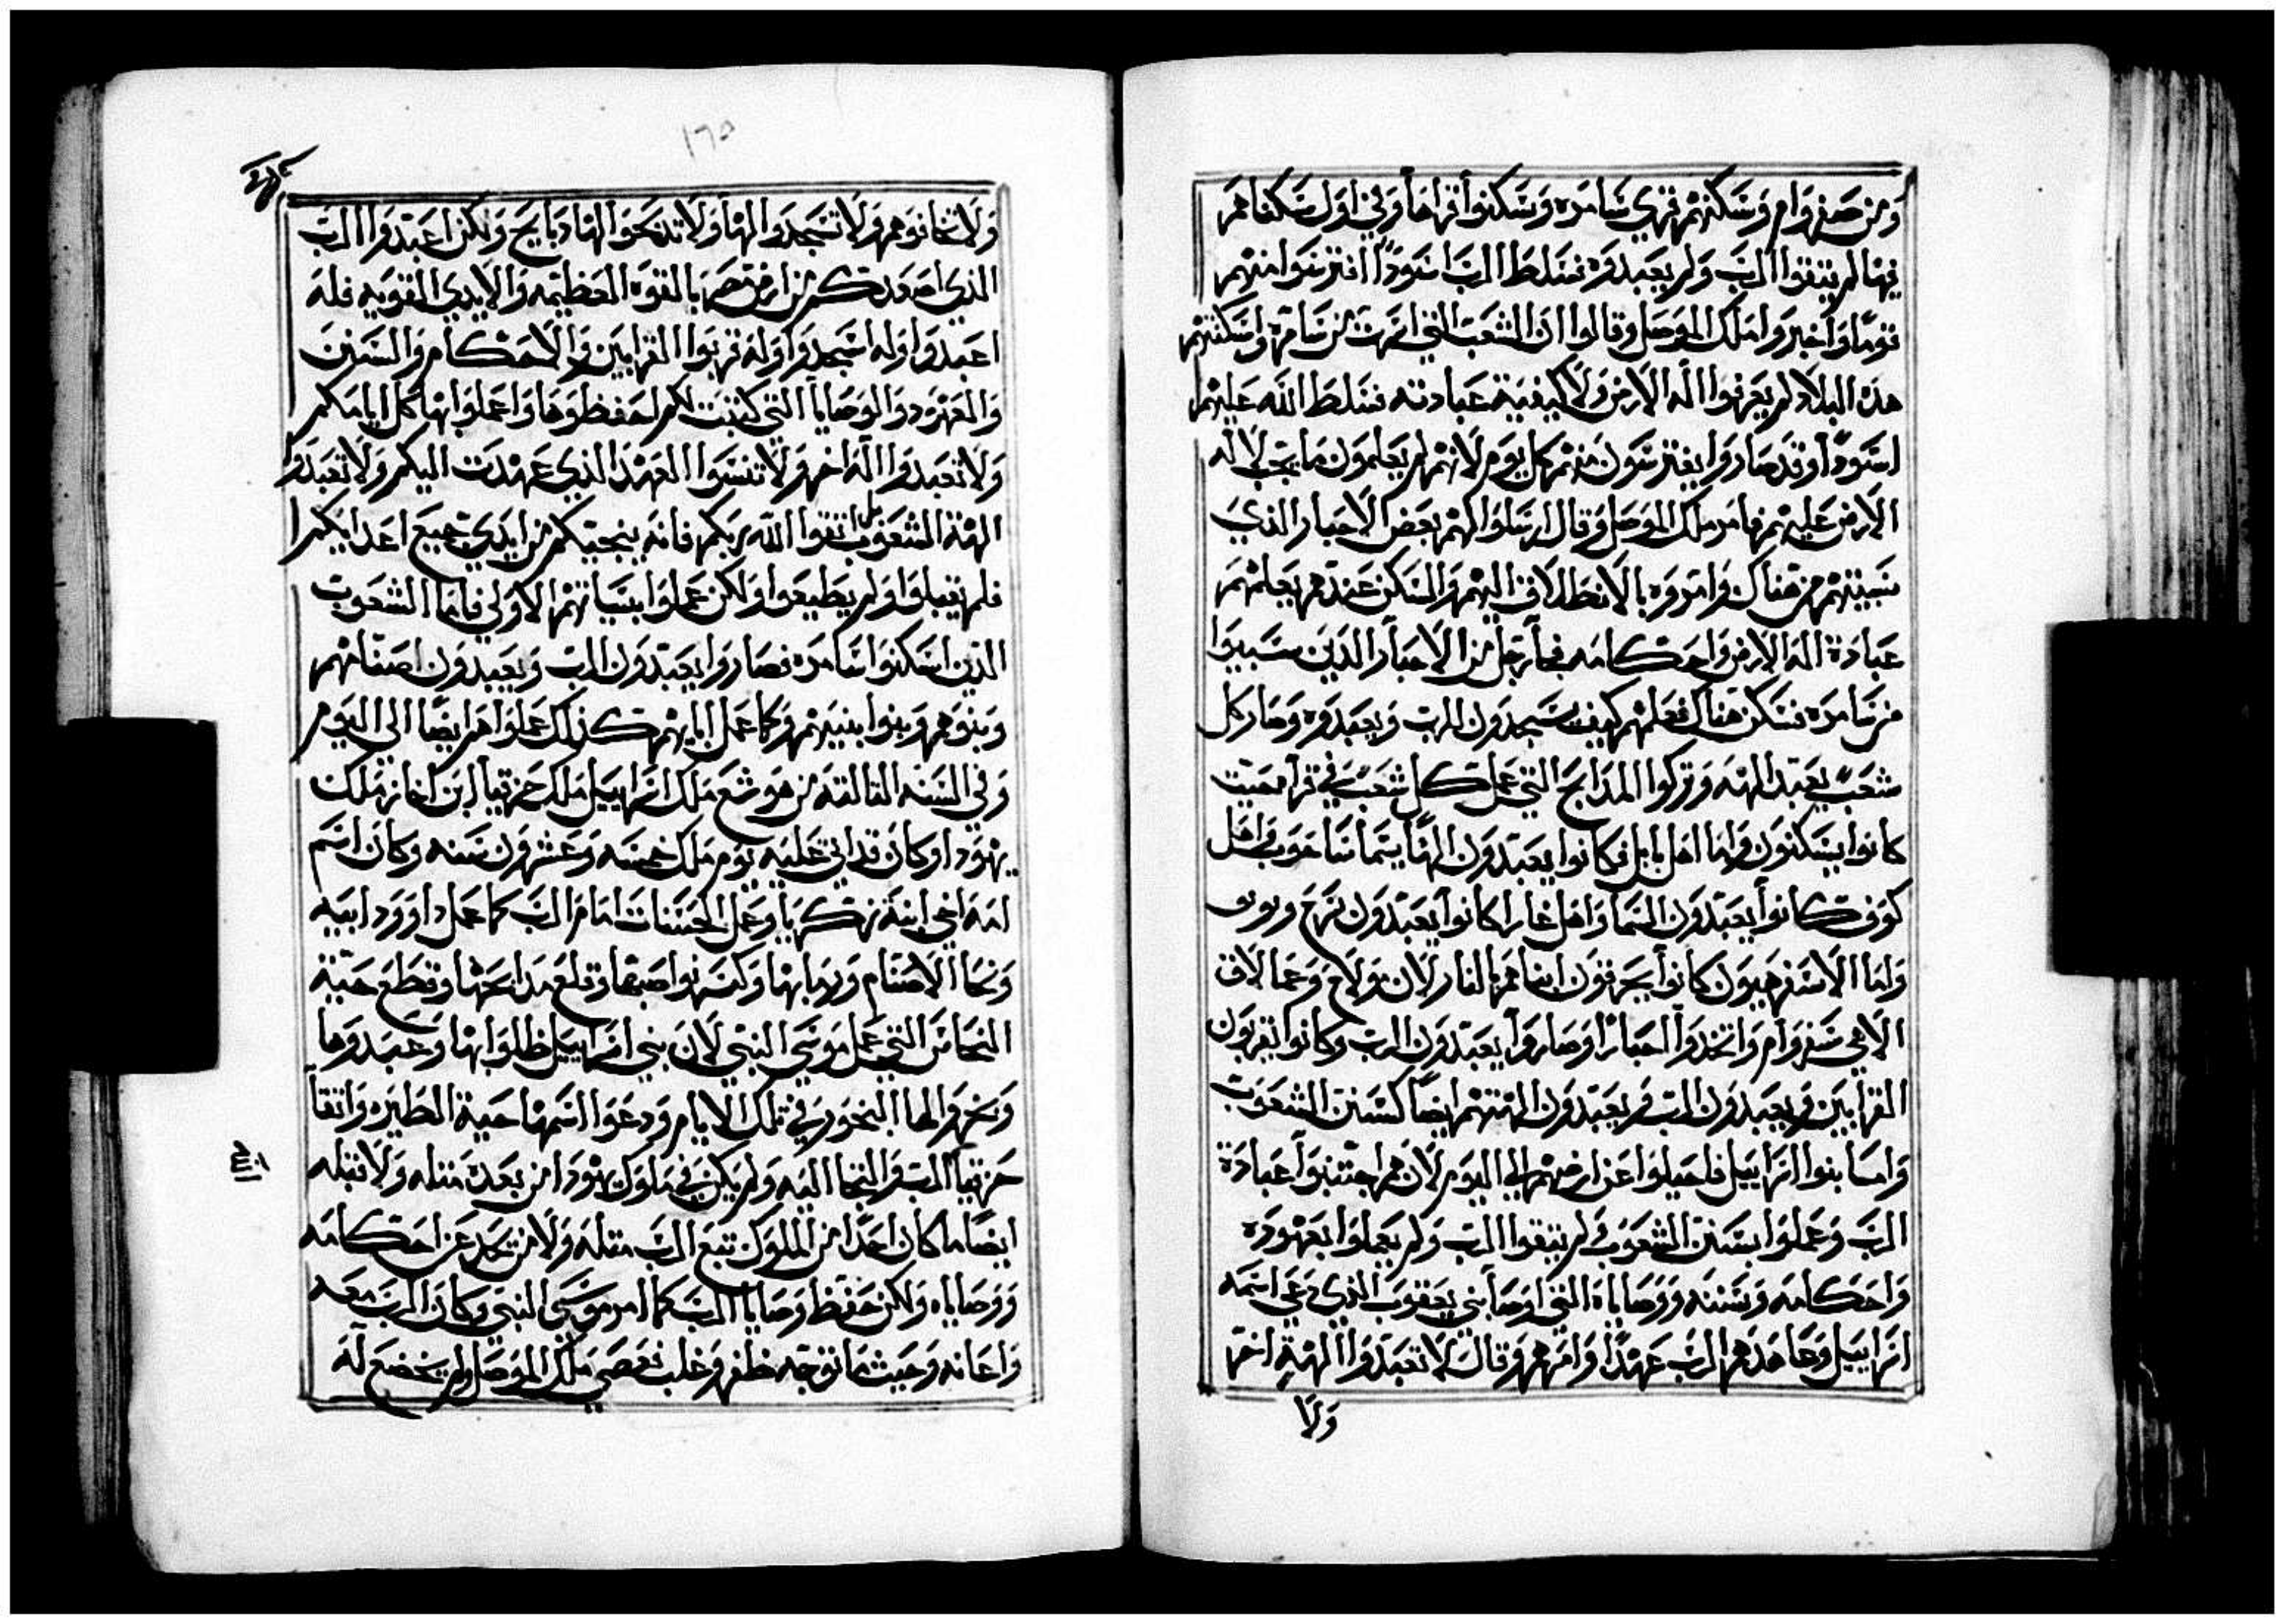 ومن صفروام وسكنهم قري سامره وسكنوا قراها وفي اول سكناهم
فيها لم يتقوا الرب ولم يعبدوه فسلط الرب اسودًا افترسوا منهم
قومًا واخبروا ملك الموصل وقالوا ان الشعب التي انهت من سامره واسكنتهم
هذه البلاد لم يعرفوا اله الارض ولا كيفية عبادته فسلط الله عليهم
اسودًا وقد صاروا يفترسون منهم كل يوم لانهم لم يعلمون ما يجب لاله
الارض عليهم فامر ملك الموصل وقال ارسلوا اليهم بعض الاحبار الذي
سبيتهم من هناك وامروه بالانطلاق اليهم والسكن عندهم يعلمهم
عبادة اله الارض واحكامه فجا رجل من الاحبار الذين سبيوا
من سامره فسكن هناك فعلمهم كيف يسجدون للرب ويعبدوه وصار كل
شعب يعبد الهته وتركوا المدابح التي عمل كل شعب في قراه حيت
كانوا يسكنون واما اهل بابل فكانوا يعبدون الهًا يتما ساخوب واهل
كوف كانوا يعبدون السما واهل غارا كانوا يعبدون نرح
واما الاسفرحيون كانوا يحرقون ابناهم بالنار لان ملاخ وعمالاق
الاهي سفروام واتخدوا احبارًا وصاروا يعبدون الرب وكانوا يقربون
القرابين ويعبدون الرب ويعبدون الهتهم ايضًا كسنن الشعوب
واما بنوا اسراييل فاحيلوا عن ارضهم الي اليوم لانهم اجتنبوا عبادة
الرب وعملوا بسنن الشعوب ولم يتقوا الرب ولم يعملوا بعهوده
واحكامه وسننه ووصاياه التي اوصا بني يعقوب الذي دعي اسمه
اسراييل وعاهدهم الرب عهدًا وامرهم وقال لا تعبدوا الهة اخر
ولا
١٦٥
ولا تخافوهم ولا تسجدوا لها ولا تدبحوا لها دبايح ولكن اعبدوا الرب
الذي اصعدتكم من ارض مصر بالقوه العظيمه والايدي القويه فله
اعبدوا وله اسجدوا وله قربوا القرابين والاحكام والسنن
والعهود والوصايا التي كتبت لكم احفظوها واعملوا بها كل ايامكم
ولا تعبدوا اله اخر ولا تنسوا العهد الذي عهدت اليكم ولا تعبدوا
الهة الشعوب بل اتقوا الله ربكم فانه ينجيكم من ايدي جميع اعدايكم
فلم يقبلوا ولم يطيعوا ولكن عملوا بسياتهم الاولي فاما الشعوب
الذين اسكنوا سامره فصاروا يعبدون الرب ويعبدون اصنامهم
وبنوهم وبنوا بنيهم وكما عمل ابايهم كذلك عملوا هم ايضًا الى اليوم
وفي السنه التالته من هوشع ملك اسراييل ملك حزقيا ابن احاز ملك
يهودا وكان قد اتي عليه يوم ملك خمسه وعشرون سنه وكان اسم
امه اغي ابنة زكريا وعمل الحسنات امام الرب كما عمل داوود ابيه
ونحا الاصنام ورما بها وكسر نواصبها وقلع مدابحها وقطع حية
النحاس التي عمل موسي النبي لان بني اسراييل ظلوا بها وعبدوها
وبخروا لها البخور في تلك الايام ودعوا اسمها حية الطيره واتقا
حزقيا الرب والتجا اليه ولم يكن في ملوك يهودا من بعده متله ولا قبله
ايضًا ما كان احدًا من الملوك تبع الرب متله ولا من تحيد عن احكامه
ووصاياه ولكن حفظ وصايا الرب كما امر موسى النبي وكان الرب معه
واعانه وحيث ما توجه ظفر وغلب فعصي ملك الموصل ولم يخضع له